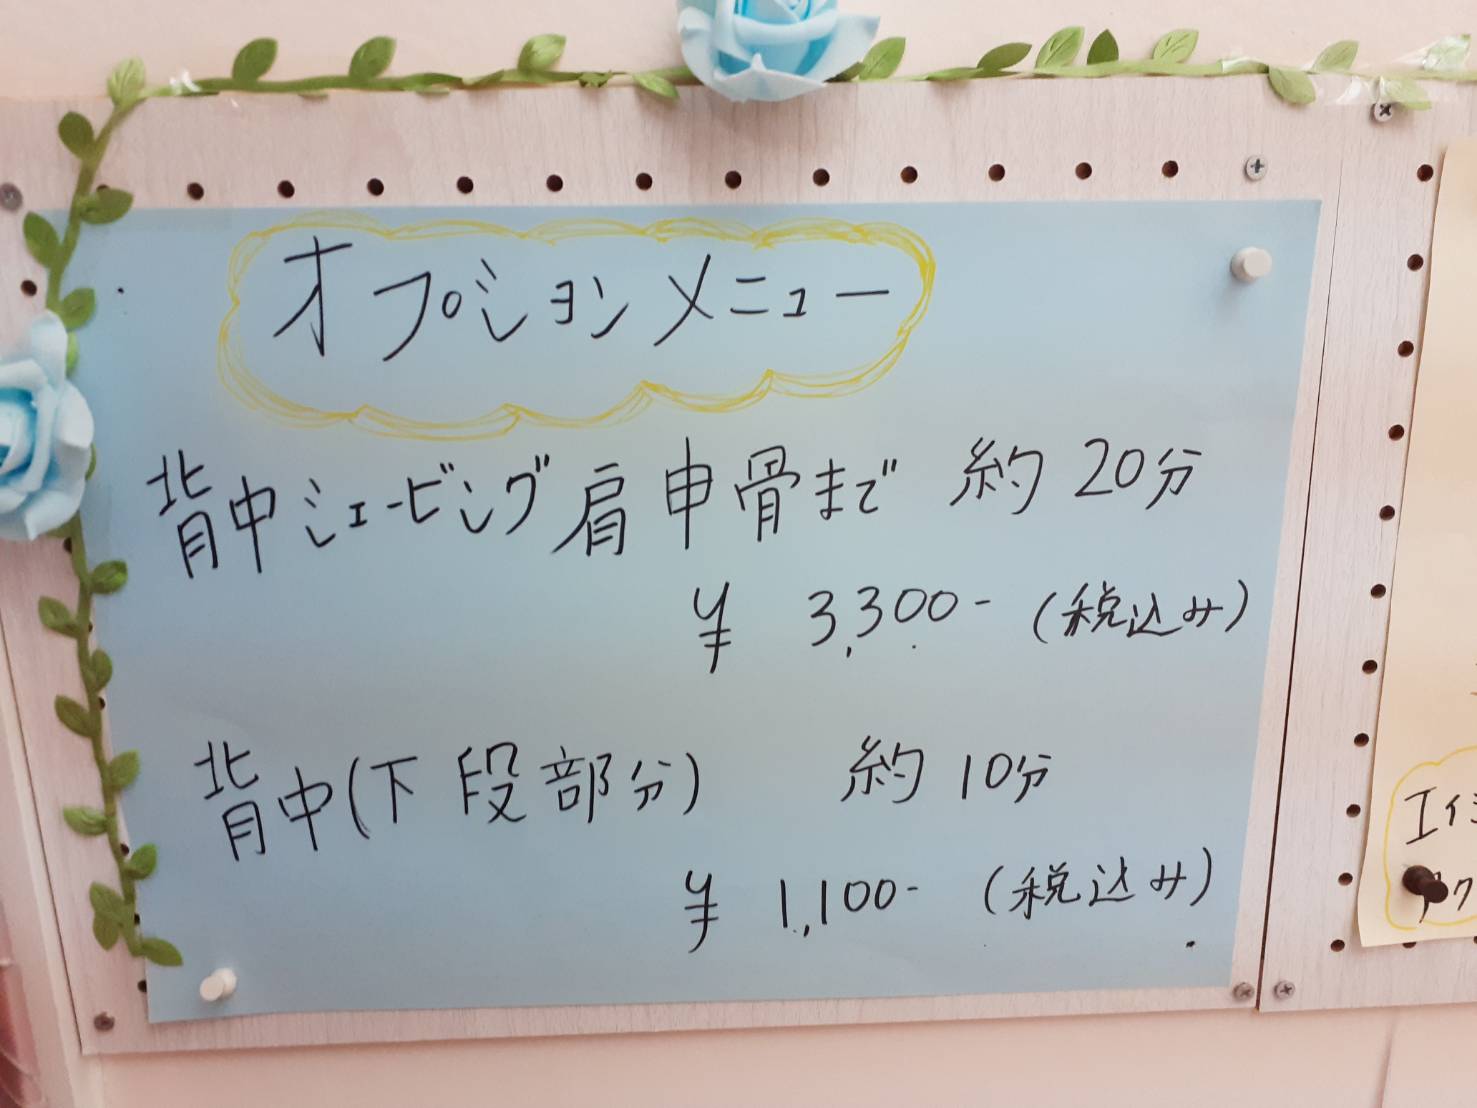 オプションメニュー
背中シェービング肩申骨まで 約20分
¥ 3,300- (税込み)
背中(下段部分) 約10分
¥ 1,100- (税込み)